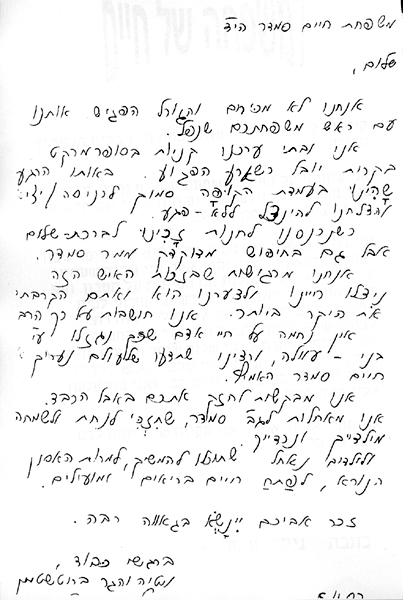 משפחת חיים סמדר הי"ד
שלום,
אנחנו לא מכירים והגורל הפגיש אותנו
עם ראש משפחתכם שנפל.
אני ובתי ערכנו קניות בסופרמרקט
בקרית יובל כשארע הפיגוע. באותו הרגע
שהינו בעמדת הקופה סמוך לכניסה/יציאה
והצלחנו להינצל ללא-פגע.
כשנכנסנו לחנות זכינו לברכת-שלום
אבל גם בחיפוש מדוקדק ממר סמדר.
אנחנו מרגישות שבזכות האיש הזה
ניצלו חיינו ולצערנו הוא ואתם הקרבתם
את היקר ביותר. אנו חושבות על כך הרבה
אין נחמה על חיי אדם שכך נגזלו ע"י
בני-עוולה, ורצינו שתדעו שלעולם נעריך
חיים סמדר האמיץ.
אנו מבקשות לחזק אתכם באבל הכבד.
אנו מאחלות לגב' סמדר, שתזכי לנחת ולשמחה
מילדייך ונכדייך.
ולילדים נאחל שתוכלו להמשיך, למרות האסון
הנורא, לפתח חיים בריאים ומועילים.
זכר אביכם יינשא בגאווה רבה.
ברגשי כבוד,
והגר ברוטשטיין